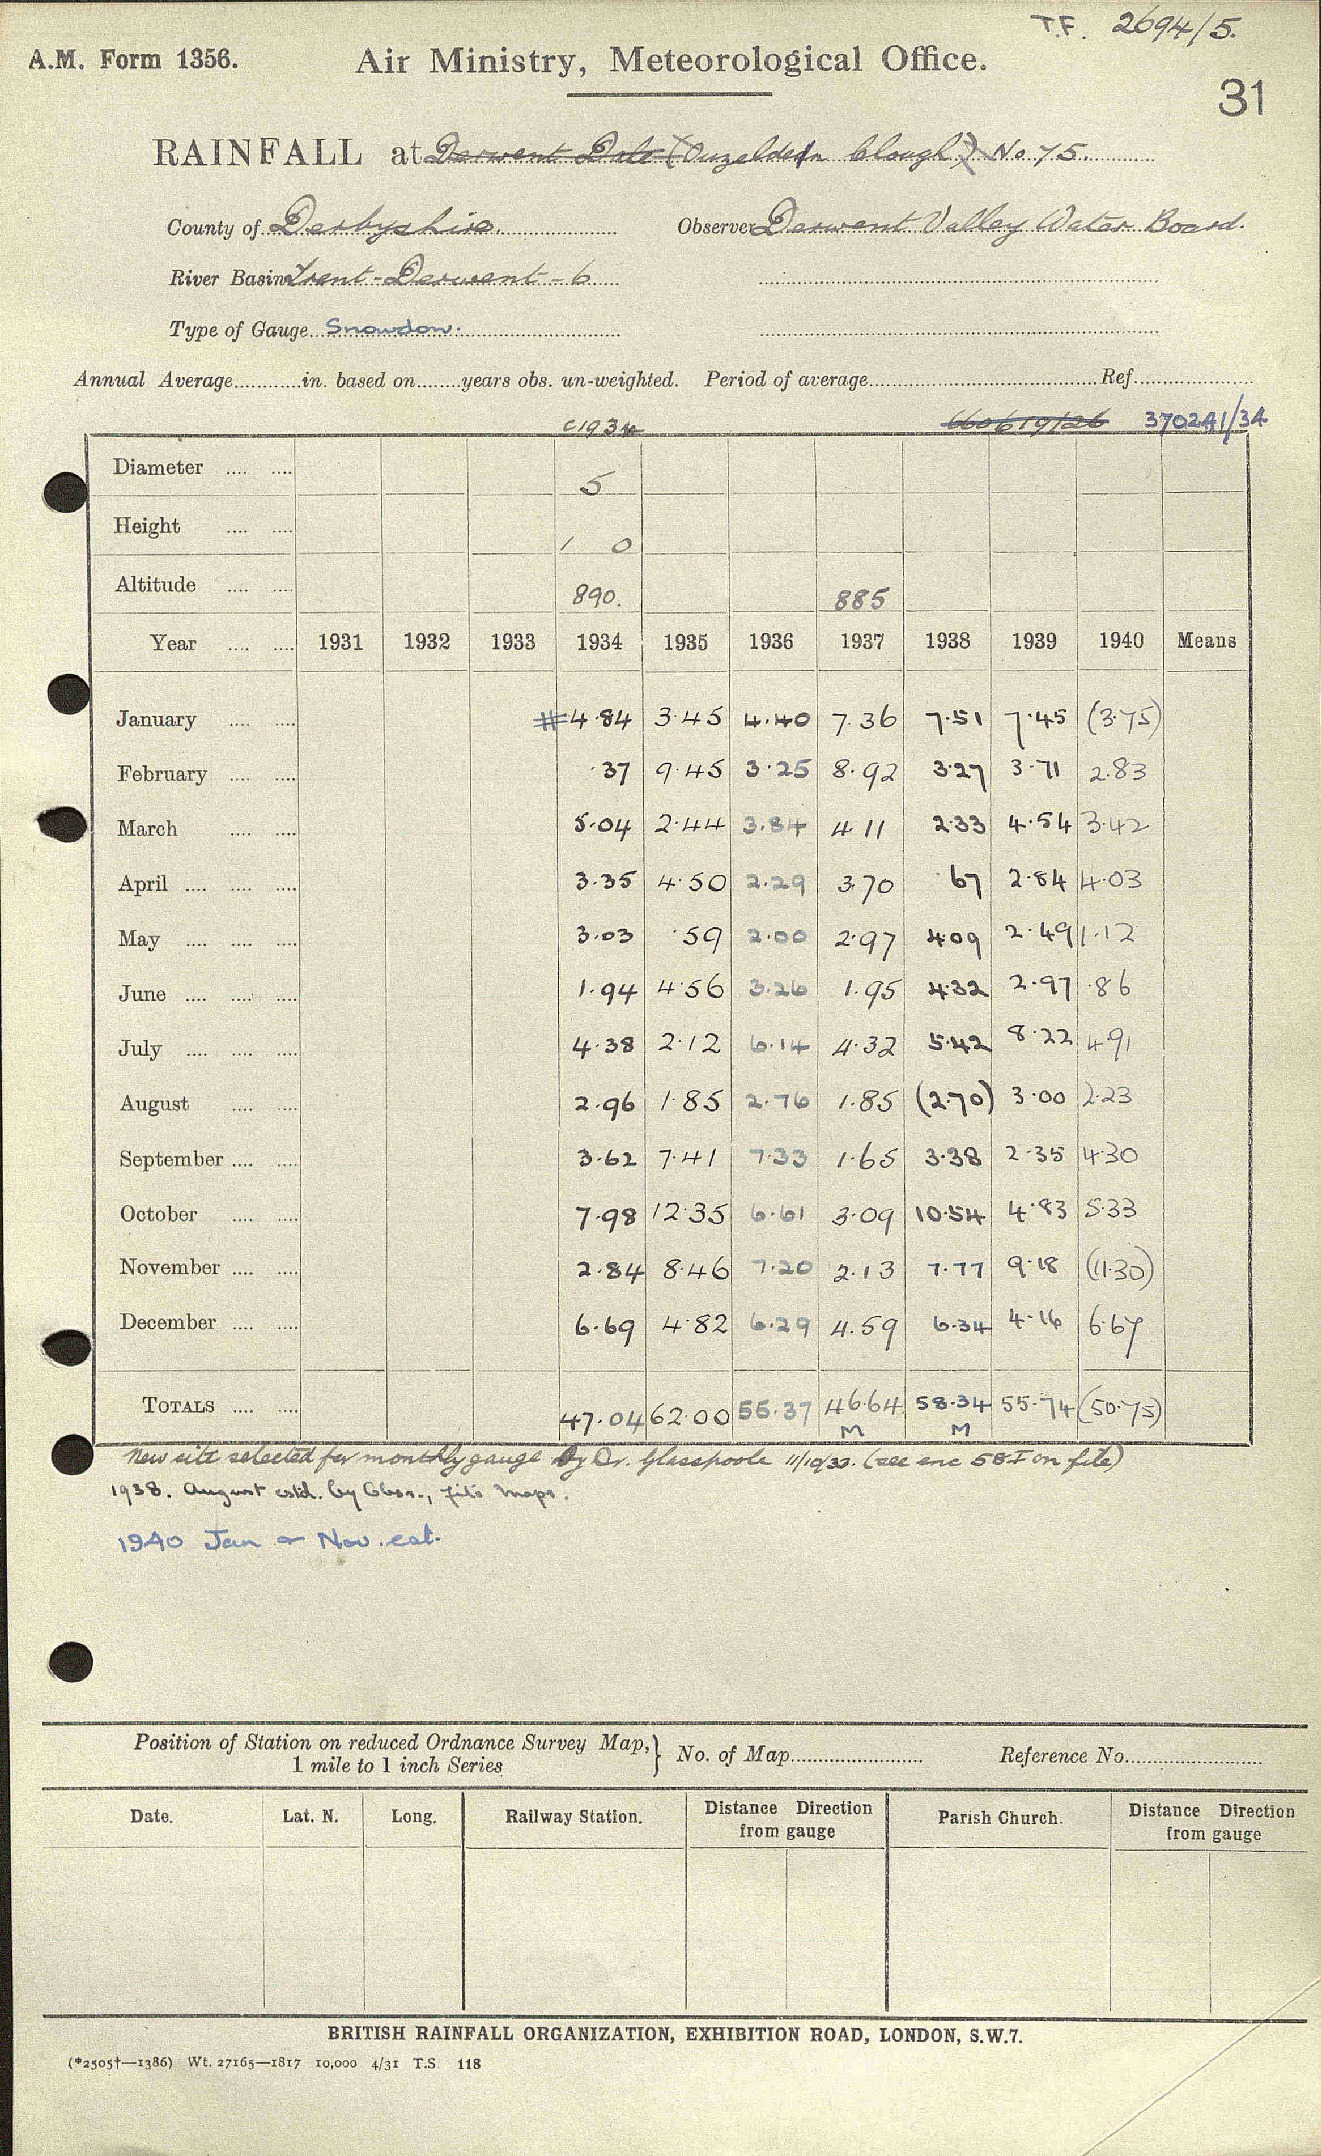 T.F. 2694/5.
A.M. Form 1356.
Air Ministry, Meteorological Office.
31
RAINFALL at Derwent Dale (Ouzelden Clough) No 75.
County of Derbyshire.
Observer Derwent Valley Water Board.
River Basin Trent-Derwent-6
Type of Gauge Snowdon.
Annual Average in. based on years obs. un-weighted. Period of average Ref.
c1934 660619/26 370241/34
Diameter 5
Height 1 0
Altitude 890. 885
Year 1931 1932 1933 1934 1935 1936 1937 1938 1939 1940 Means
January #4.84 3.45 4.40 7.36 7.51 7.45 (3.75)
February .37 9.45 3.25 8.92 3.27 3.71 2.83
March 5.04 2.44 3.84 4.11 2.33 4.54 3.42
April 3.35 4.50 2.29 3.70 .67 2.84 4.03
May 3.03 .59 2.00 2.97 4.09 2.49 1.12
June 1.94 4.56 3.26 1.95 4.32 2.97 .86
July 4.38 2.12 6.14 4.32 5.42 8.22 4.91
August 2.96 1.85 2.76 1.85 (2.70) 3.00 2.23
September 3.62 7.41 7.33 1.65 3.38 2.35 4.30
October 7.98 12.35 6.61 3.09 10.54 4.83 5.33
November 2.84 8.46 7.20 2.13 7.77 9.18 (11.30)
December 6.69 4.82 6.29 4.59 6.34 4.16 6.67
TOTALS 47.04 62.00 55.37 46.64 58.34 55.74 (50.75)
M M
New site selected for monthly gauge by Dr. Glasspoole 11/10/33. (see enc 58I on file)
1938. August estd. by Obsr., fits maps.
1940 Jan & Nov. est.
Position of Station on reduced Ordnance Survey Map,
1 mile to 1 inch Series
No. of Map
Reference No.
Date. Lat. N. Long. Railway Station. Distance Direction from gauge Parish Church. Distance Direction from gauge
BRITISH RAINFALL ORGANIZATION, EXHIBITION ROAD, LONDON, S.W.7.
(*2505†—1386) Wt. 27165—1817 10,000 4/31 T.S 118